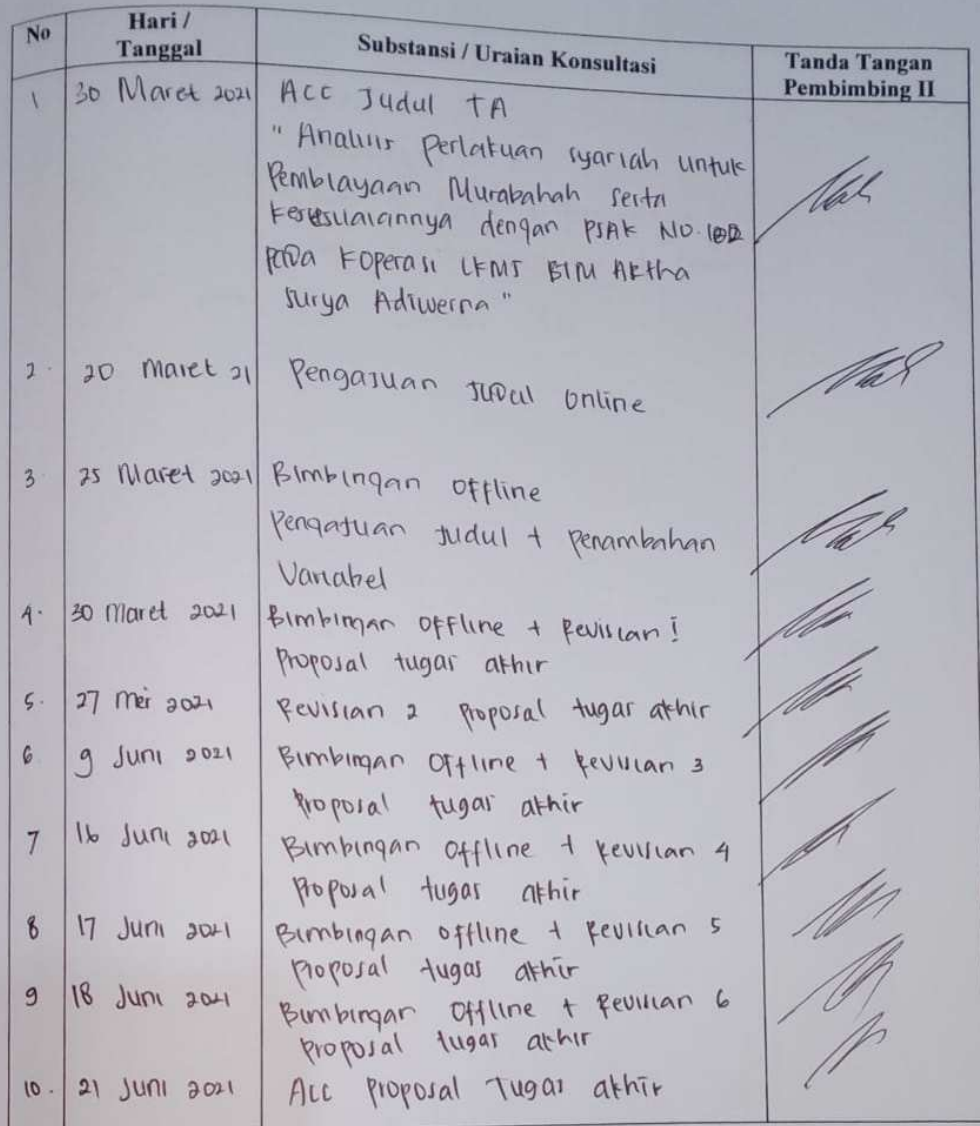 No Hari / Tanggal Substansi / Uraian Konsultasi Tanda Tangan Pembimbing II
1 30 Maret 2021 Acc Judul TA
" Analisis perlakuan syariah untuk
Pembiayaan Murabahah serta
kesesuaiannya dengan PSAK NO. 102
pada Koperasi LKMS BIM Artha
Surya Adiwerna "
2. 20 Maret 21 Pengajuan Judul Online
3. 25 Maret 2021 Bimbingan Offline
Pengajuan Judul + Penambahan
Variabel
4. 30 Maret 2021 Bimbingan Offline + Revisian 1
Proposal tugas akhir
5. 27 Mei 2021 Revisian 2 Proposal tugas akhir
6 9 Juni 2021 Bimbingan Offline + Revisian 3
Proposal tugas akhir
7 16 Juni 2021 Bimbingan Offline + Revisian 4
Proposal tugas akhir
8 17 Juni 2021 Bimbingan Offline + Revisian 5
Proposal tugas akhir
9 18 Juni 2021 Bimbingan Offline + Revisian 6
Proposal tugas akhir
10. 21 Juni 2021 Acc Proposal Tugas akhir